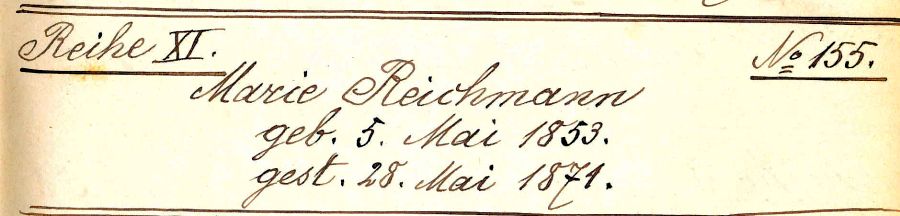 Reihe XI. No 155.
Marie Reichmann
geb. 5. Mai 1853.
gest. 28. Mai 1871.